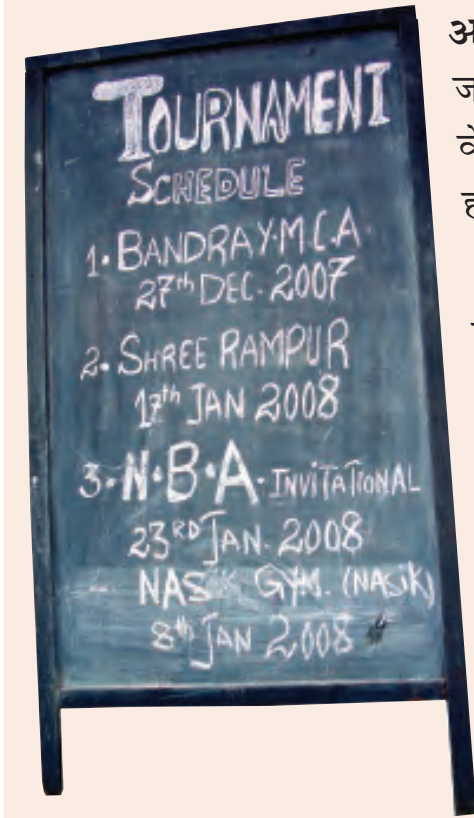 TOURNAMENT
SCHEDULE
1. BANDRA Y.M.C.A.
27th DEC. 2007
2. SHREE RAMPUR
17th JAN 2008
3. N.B.A. INVITATIONAL
23RD JAN. 2008
NASIK GYM. (NASIK)
8th JAN 2008